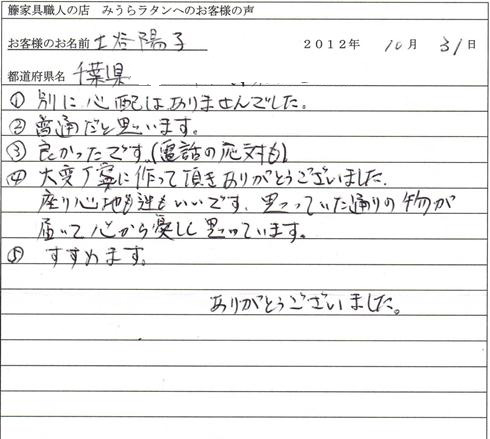 籐家具職人の店 みうらラタンへのお客様の声
お客様のお名前 土谷陽子 2012年 10月 31日
都道府県名 千葉県
① 別に心配はありませんでした。
② 普通だと思います。
③ 良かったです。(電話の応対も)
④ 大変丁寧に作って頂きありがとうございました。
座り心地も迚もいいです、思っていた通りの物が
届いて心から嬉しく思っています。
⑤ すすめます。
ありがとうございました。